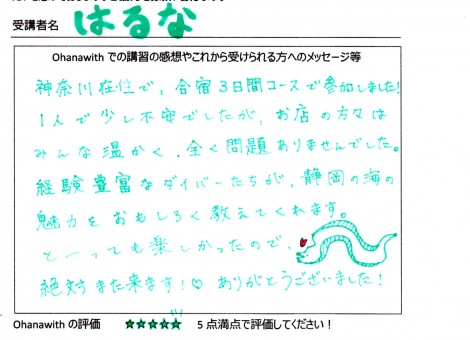 受講者名 はるな
Ohanawith での講習の感想やこれから受けられる方へのメッセージ等
神奈川在住で、合宿3日間コースで参加しました!
1人で少し不安でしたが、お店の方々は
みんな温かく、全く問題ありませんでした。
経験豊富なダイバーたちが、静岡の海の
魅力をおもしろく教えてくれます。
と一っても楽しかったので、
絶対また来ます!♡ ありがとうございました!
Ohanawith の評価 ☆☆☆☆☆ 5点満点で評価してください!